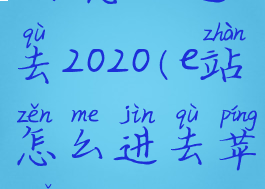 qù zhàn
去2020(e站
zěn me jìn qù píng
怎么进去苹